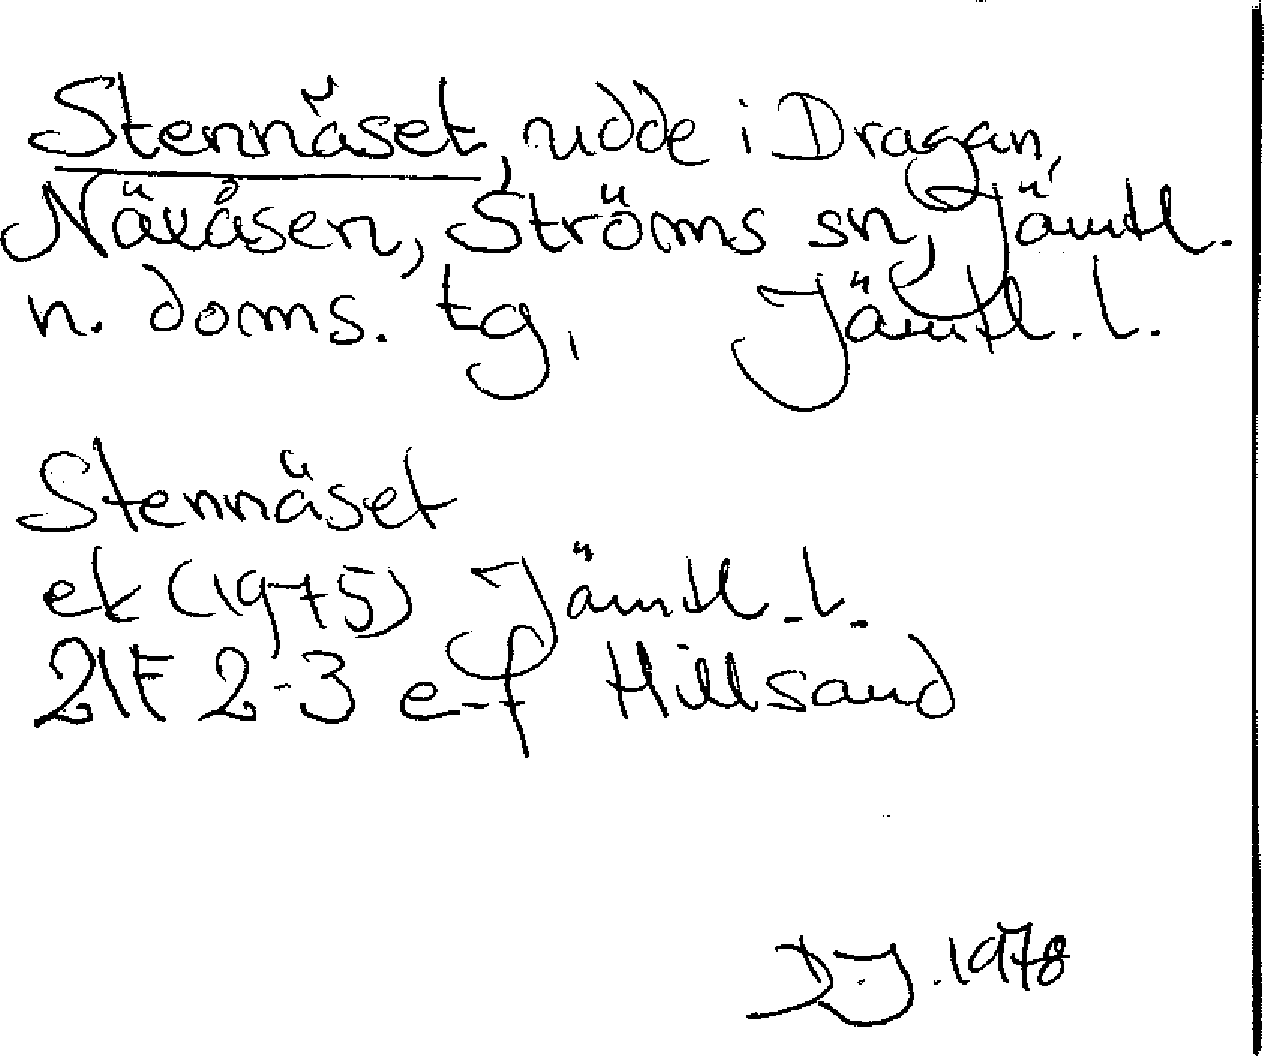 Stennäset, udde i Dragan,
Nävåsen, Ströms sn, Jämtl.
n. doms. tg, Jämtl. l.
Stennäset
ek (1975) Jämtl. l.
21F 2-3 e-f Hillsand
D.J. 1978